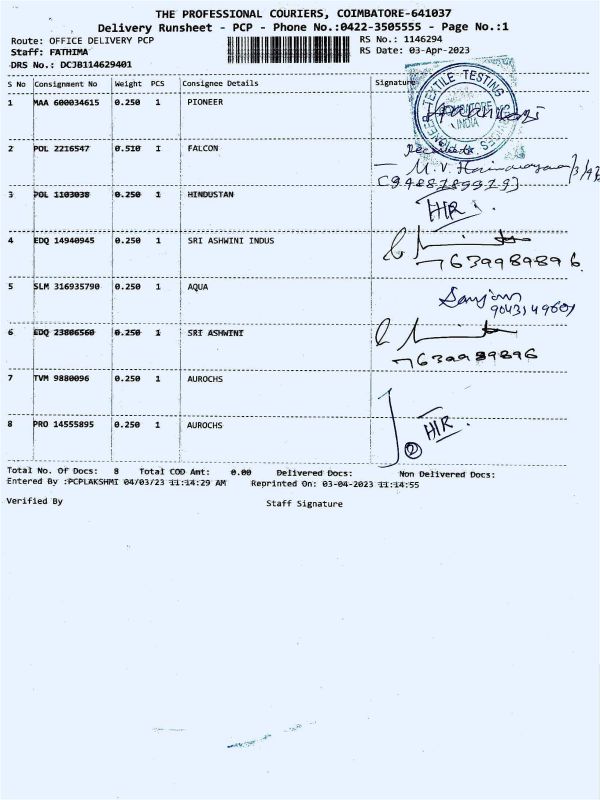 THE PROFESSIONAL COURIERS, COIMBATORE-641037
Delivery Runsheet - PCP - Phone No.:0422-3505555 - Page No.:1
Route: OFFICE DELIVERY PCP RS No.: 1146294
Staff: FATHIMA RS Date: 03-Apr-2023
DRS No.: DCJB114629401
S No Consignment No Weight PCS Consignee Details Signature
1 MAA 600034615 0.250 1 PIONEER
TEXTILE TESTING
INDIA
2 POL 2216547 0.510 1 FALCON
3 POL 1103038 0.250 1 HINDUSTAN
4 EDQ 14940945 0.250 1 SRI ASHWINI INDUS
7639989896
5 SLM 316935790 0.250 1 AQUA
6 EDQ 23806560 0.250 1 SRI ASHWINI
7639989896
7 TVM 9880096 0.250 1 AUROCHS
8 PRO 14555895 0.250 1 AUROCHS
2
Total No. Of Docs: 8 Total COD Amt: 0.00 Delivered Docs: Non Delivered Docs:
Entered By :PCPLAKSHMI 04/03/23 11:14:29 AM Reprinted On: 03-04-2023 11:14:55
Verified By Staff Signature